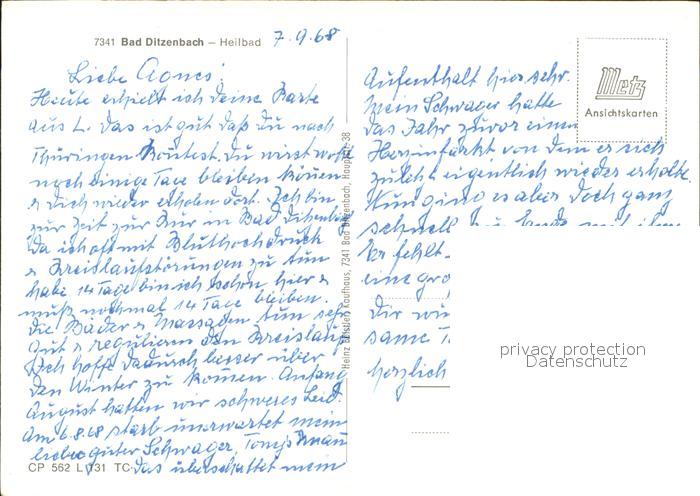 7341 Bad Ditzenbach – Heilbad 7.9.68
Liebe Agnes!
Heute erhielt ich deine Karte
aus L. Das ist gut daß du nach
Thüringen konntest. Du wirst wohl
noch einige Tage bleiben können
& Dich wieder erholen dort. Ich bin
zur Zeit zur Kur in Bad Ditzenbach
Da ich oft mit Bluthochdruck
& Kreislaufstörungen zu tun
habe. 14 Tage bin ich schon hier &
muß nochmal 14 Tage bleiben.
Die Bäder & Massagen tun sehr
gut & regulieren den Kreislauf
Ich hoffe dadurch besser über
den Winter zu kommen. Anfang
August hatten wir schweres Leid.
Am 6.8.68 starb unerwartet mein
lieber guter Schwager, Tonys Mann
CP 562 L 731 TC Das überschattet mein
Heinz Kaufhaus, 7341 Bad Ditzenbach, Hauptstr. 38
Aufenthalt hier sehr.
Mein Schwager hatte
das Jahr zuvor einen
Herzinfarkt von dem er sich
zuletzt eigentlich wieder erholte.
Nun ging es aber doch ganz
schnell zu Ende mit ihm
Er fehlt
eine gro
Dir wü
same
herzlich
Metz
Ansichtskarten
privacy protection
Datenschutz